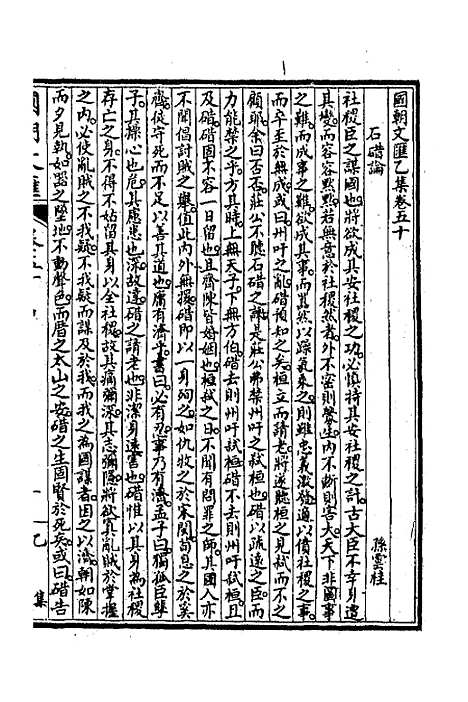 國朝文匯乙集卷五十
石碏論
孫雲桂
社稷臣之謀國也將欲成其安社稷之功必慎持其安社稷之計古大臣不幸身遭
其變而容容默默若無意於社稷然者外不密則釁生內不斷則害大天下非圖事
之難而成事之難欲成其事而囂然以躁氣乘之則雖忠義激發適以僨社稷之事
而卒至於無成或曰州吁之亂碏預知之矣桓立而請老將遂聽桓之見弒而不之
顧耶余曰否否莊公不聽石碏之諫是莊公弗禁州吁之弒桓也碏以疏遠之臣而
力能禁之乎方其時上無天子下無方伯碏去則州吁弒桓碏不去則州吁弒桓且
及碏碏固不容一日留也且齊陳皆婚姻也桓弒之日不聞有問罪之師其國人亦
不聞倡討賊之舉值此內外無援碏即以一身殉之如仇牧之於宋閔荀息之於奚
齊徒守死而不足以善其道也庸有濟乎書曰必有忍事乃有濟孟子曰獨孤臣孽
子其操心也危其慮患也深故達碏之請老也非潔身遠害也碏惟以其身為社稷
存亡之身不得不姑留其身以全社稷故其痛彌深其志彌隱將欲寘亂賊於掌握
之內必使亂賊之不我疑不我疑而謀及於我而我之為國謀者因之以濟朝如陳
而夕見執如器之墮地不動聲色而厝之太山之安碏之生固賢於死矣或曰碏告